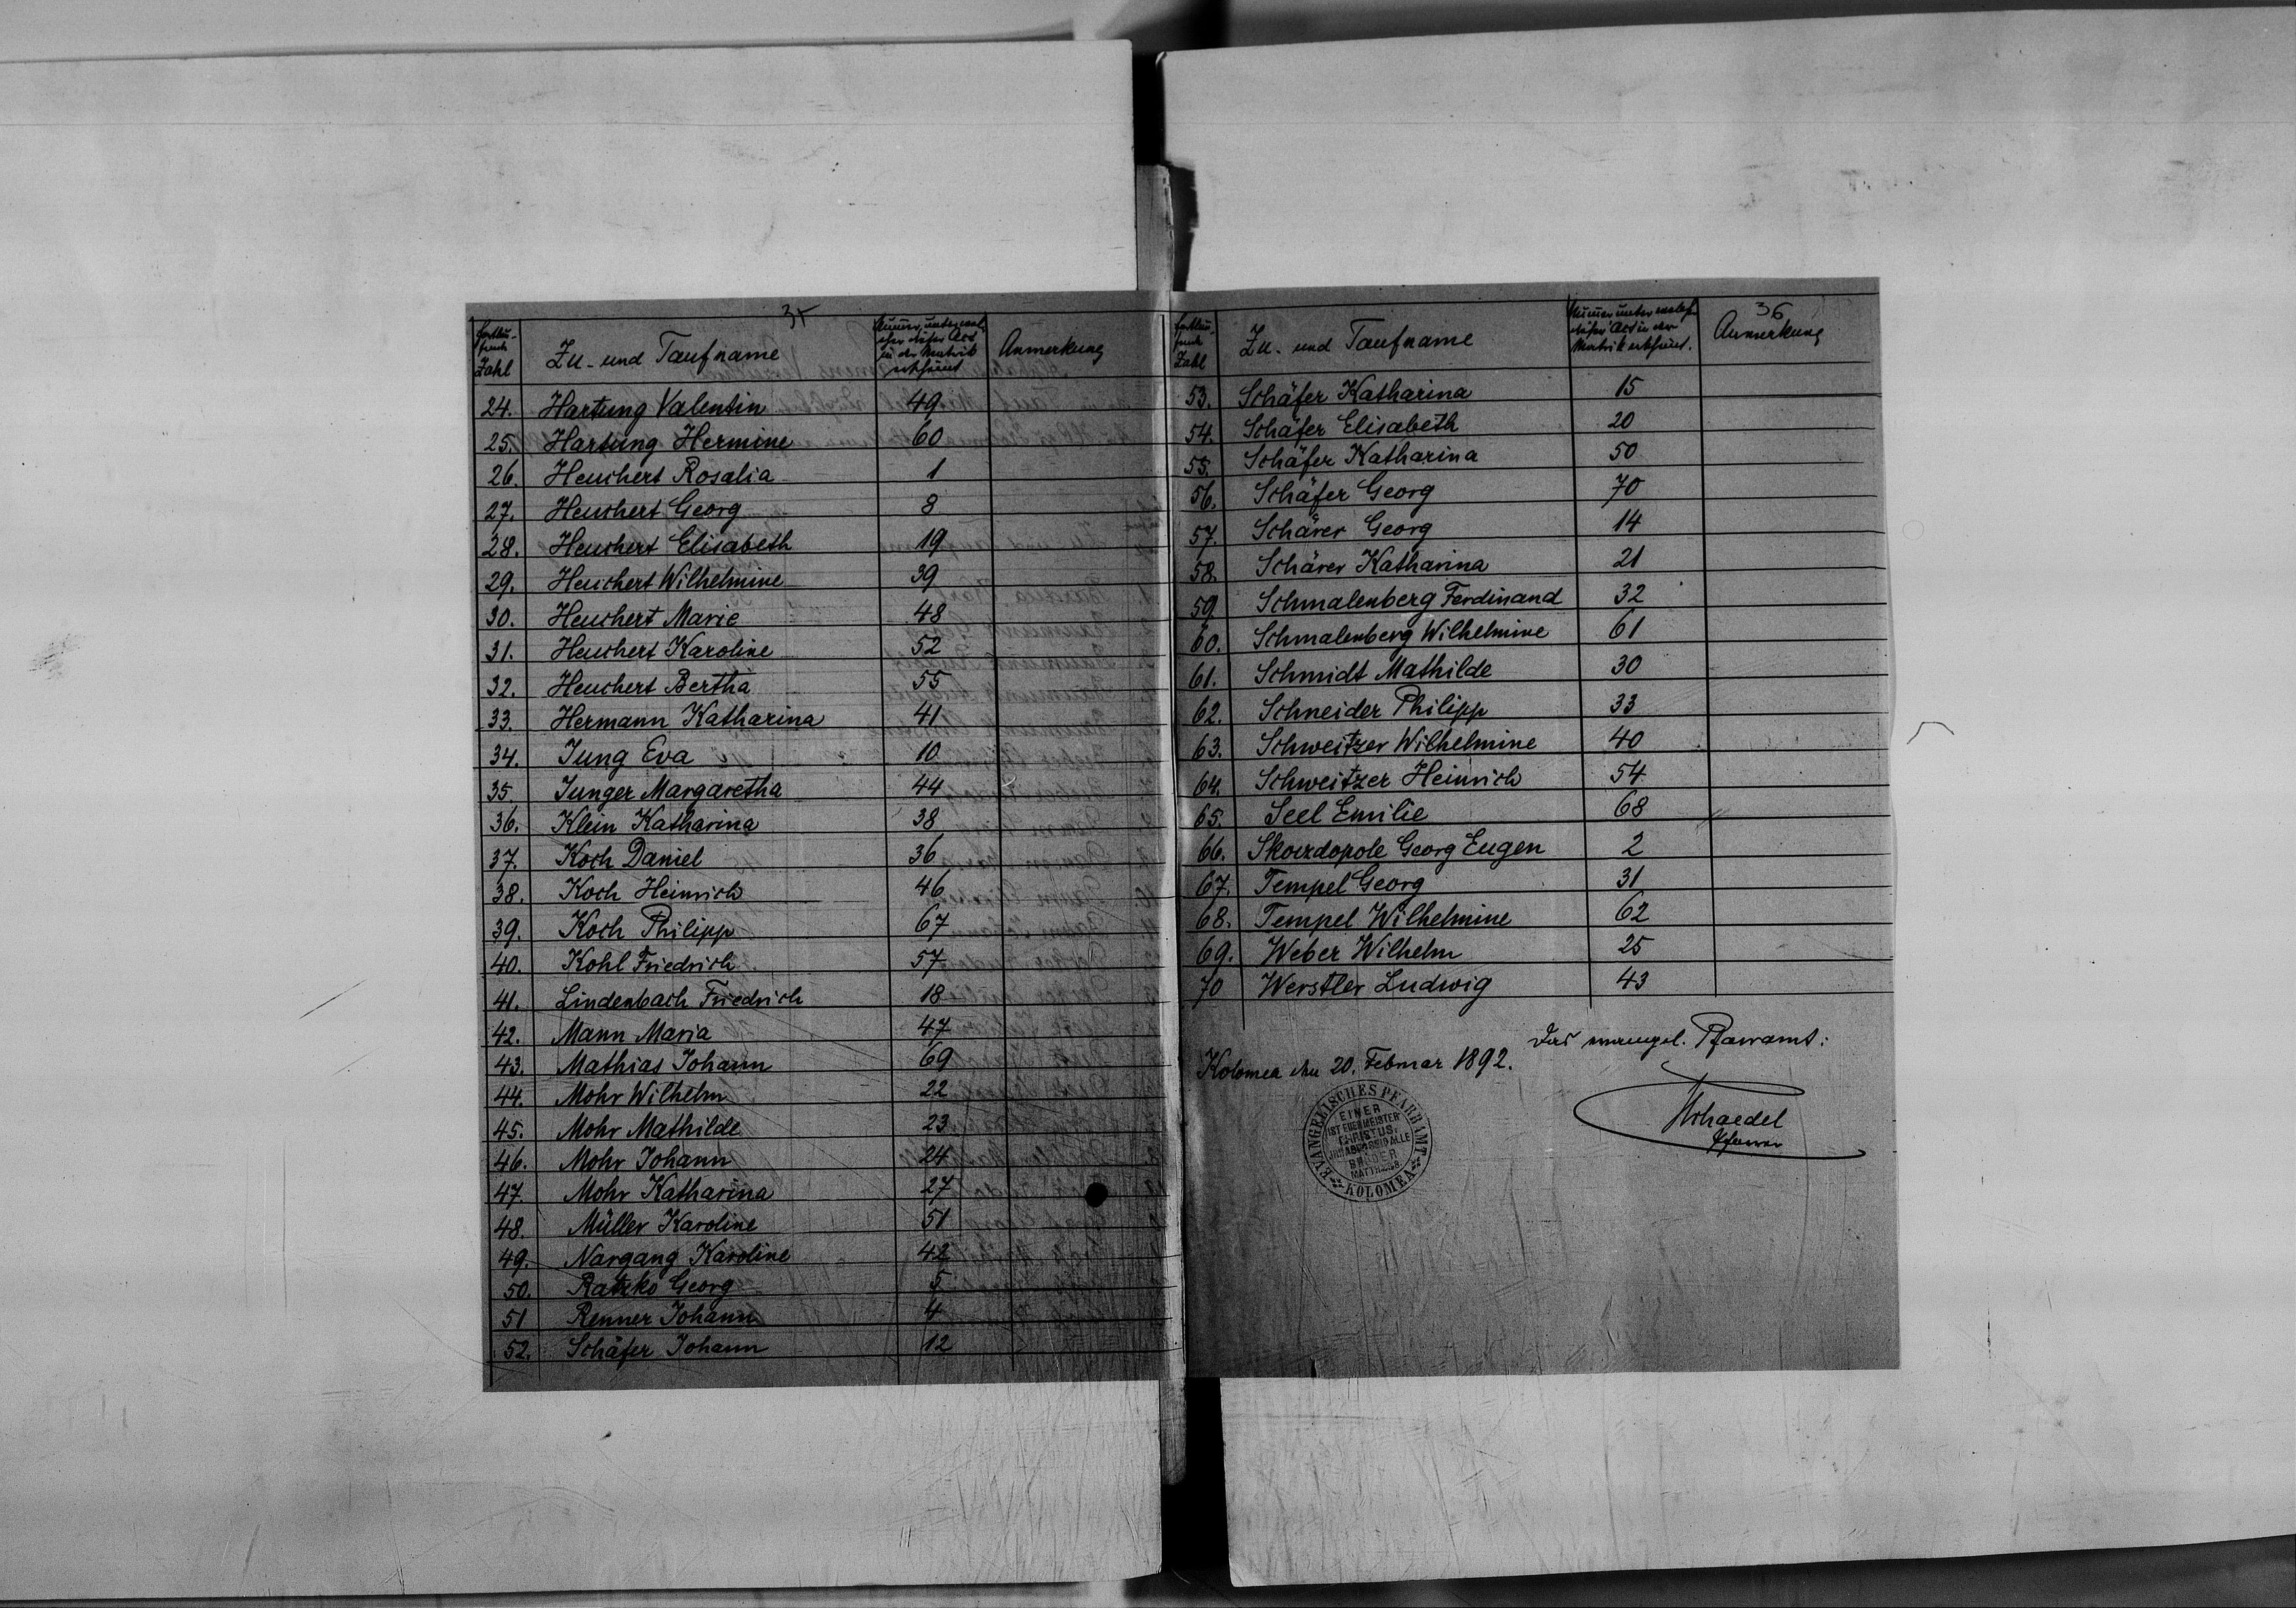 35
Fortlau-
fende
Zahl
Zu- und Taufname
Nummer, unter wel-
cher dieser Act
in der Matrik
erscheint
Anmerkung
24. Hartung Valentin 49
25. Hartung Hermine 60
26. Heuchert Rosalia 1
27. Heuchert Georg 8
28. Heuchert Elisabeth 19
29. Heuchert Wilhelmine 39
30. Heuchert Marie 48
31. Heuchert Karoline 52
32. Heuchert Bertha 55
33. Hermann Katharina 41
34. Jung Eva 10
35 Junger Margaretha 44
36. Klein Katharina 38
37. Koch Daniel 36
38. Koch Heinrich 46
39. Koch Philipp 67
40. Kohl Friedrich 57
41. Lindenbach Friedrich 18
42. Mann Maria 47
43. Mathias Johann 69
44. Mohr Wilhelm 22
45. Mohr Mathilde 23
46. Mohr Johann 24
47. Mohr Katharina 27
48. Müller Karoline 51
49. Nargang Karoline 42
50. Ratzko Georg 5
51 Renner Johann 4
52. Schäfer Johann 12
36
Fortlau-
fende
Zahl
Zu- und Taufname
Nummer unter welcher
dieser Act in der
Matrik erscheint.
Anmerkung
53. Schäfer Katharina 15
54. Schäfer Elisabeth 20
55. Schäfer Katharina 50
56. Schäfer Georg 70
57. Schärer Georg 14
58. Schärer Katharina 21
59 Schmalenberg Ferdinand 32
60. Schmalenberg Wilhelmine 61
61. Schmidt Mathilde 30
62. Schneider Philipp 33
63. Schweitzer Wilhelmine 40
64. Schweitzer Heinrich 54
65. Seel Emilie 68
66. Skowrdopole Georg Eugen 2
67. Tempel Georg 31
68. Tempel Wilhelmine 62
69. Weber Wilhelm 25
70 Werstler Ludwig 43
Das evangel. Pfarramt:
Kolomea den 20. Februar 1892.
EVANGELISCHES PFARRAMT
KOLOMEA
EINER
IST EUER MEISTER
CHRISTUS,
IHR ABER SEID ALLE
BRÜDER
MATTH. 23. 8
Schaedel
Pfarrer